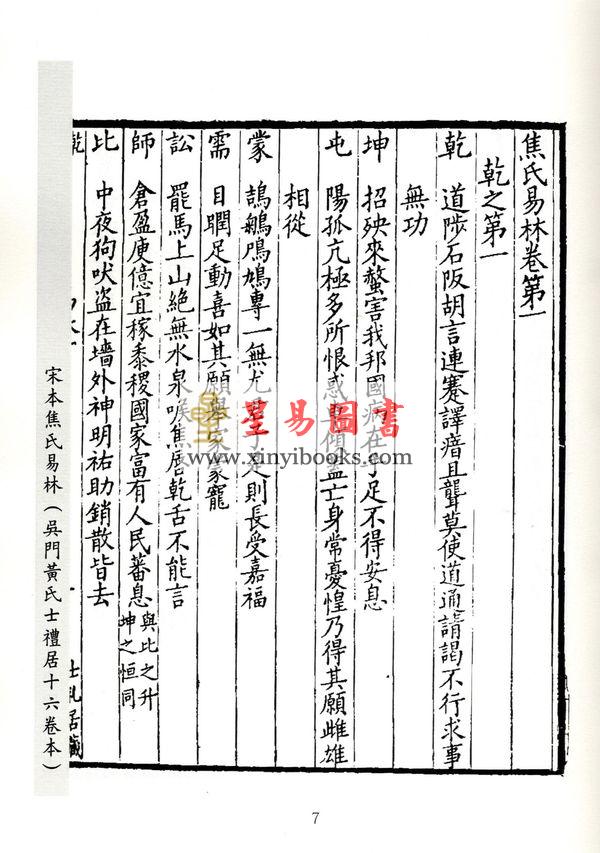 焦氏易林卷第一
乾之第一
乾 道陟石阪胡言連蹇譯瘖且聾莫使道通請謁不行求事
無功
坤 招殃來螫害我邦國病在手足不得安息
屯 陽孤亢極多所恨惑車傾蓋亡身常憂惶乃得其願雌雄
相從
蒙 鵠鵴鳲鳩專一無尤君子是則長受嘉福
需 目瞤足動喜如其願舉家蒙寵
訟 罷馬上山絕無水泉喉焦脣乾舌不能言
師 倉盈庾億宜稼黍稷國家富有人民蕃息
與比之升
坤之恒同
比 中夜狗吠盜在墻外神明祐助銷散皆去
士礼居藏
宋本焦氏易林（吳門黃氏士禮居十六卷本）
星易圖書
www.xinyibooks.com
7